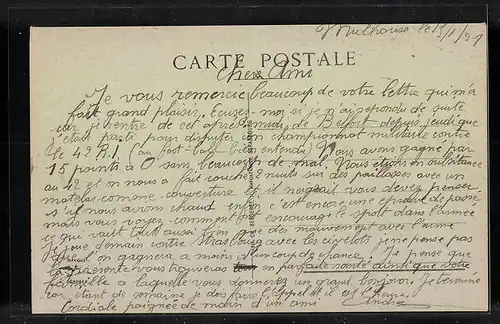 Mulhouse le 15/1/27
CARTE POSTALE
Cher Ami
Je vous remercie beaucoup de votre lettre qui m'a
fait grand plaisir. Excusez-moi si je n'ai repondu de suite
car je rentre de cet après midi de Belfort depuis jeudi que
étais parti pour disputer un championnat militaire contre
le 42 R.I. (au foot-ball bien entendu) Nous avons gagné par
15 points à 0 sans beaucoup de mal. Nous étions en subsistance
au 42 et on nous a fait coucher 2 nuits sur des paillasses avec un
matelas comme couverture et il neigeait vous devez penser
s'il nous avons chaud enfin c'est encore une epreuve de passée
mais vous voyez comment on encourage le sport dans l'armée
et qui vaut tout aussi bien que des mouvement avec l'arme
Je joue demain contre Strasbourg avec les civelots je ne pense pas
qu'on gagnera a moins d'un coup de chance. Je pense que
la presente vous trouveras en parfaite santé ainsi que votre
famille a laquelle vous donnerez un grand bonjour. Je termine
car étant de semaine je dois faire l'appel et il est
Cordiale poignée de main d'un ami André